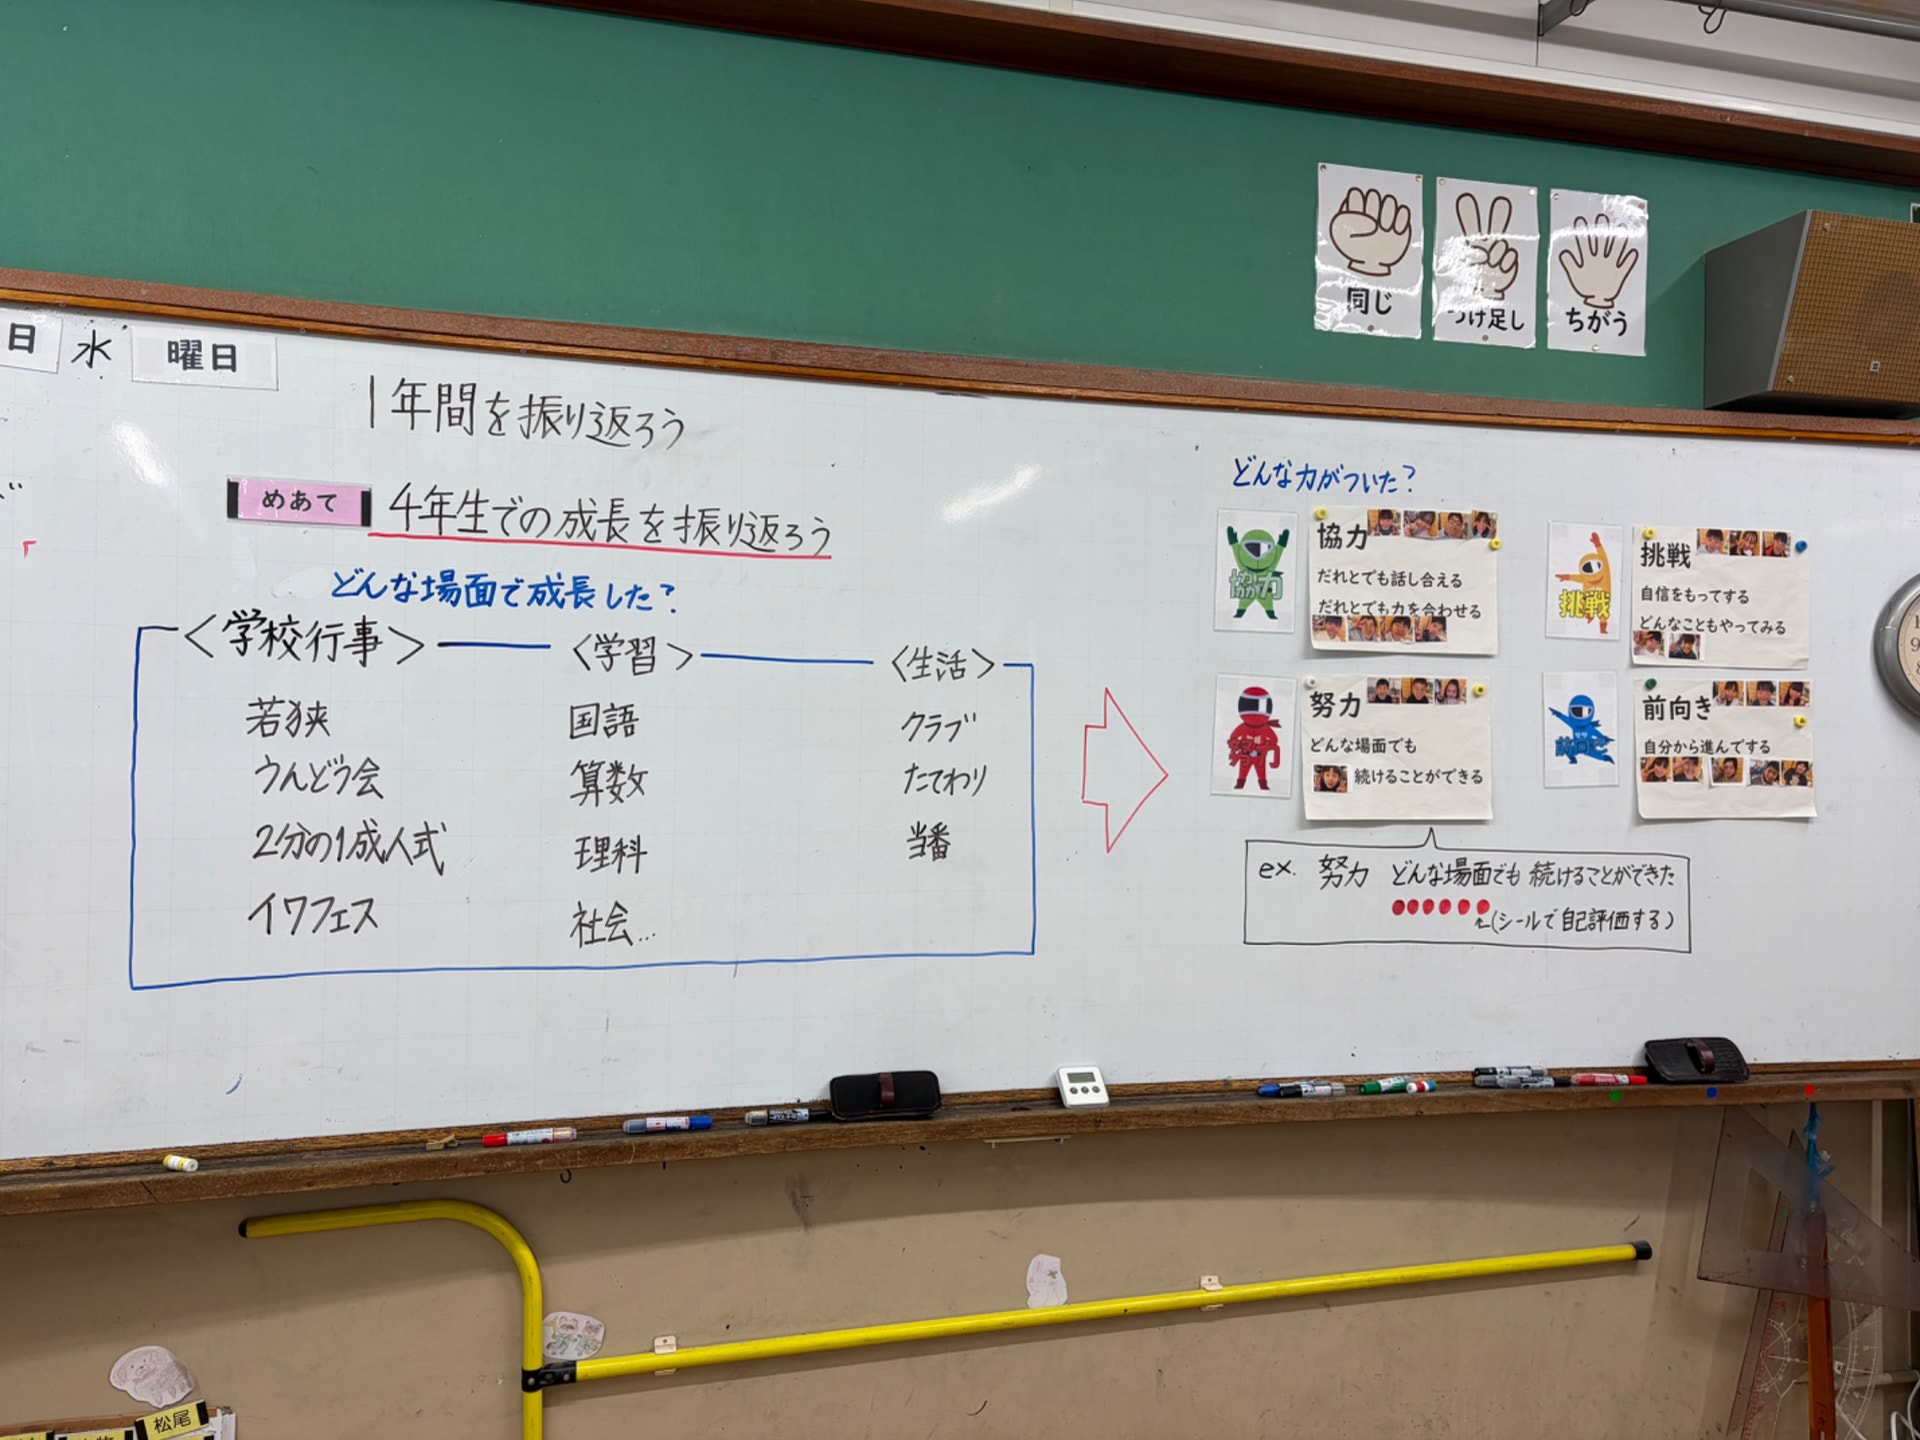 同じ
つけ足し
ちがう
日 水 曜日
1年間を振り返ろう
めあて 4年生での成長を振り返ろう
どんな場面で成長した?
<学校行事>
若狭
うんどう会
2分の1成人式
イワフェス
<学習>
国語
算数
理科
社会...
<生活>
クラブ
たてわり
当番
どんな力がついた?
協力
協力
だれとでも話し合える
だれとでも力を合わせる
挑戦
挑戦
自信をもってする
どんなこともやってみる
努力
努力
どんな場面でも
続けることができる
前向き
前向き
自分から進んでする
ex. 努力 どんな場面でも続けることができた
(シールで自己評価する)
松尾